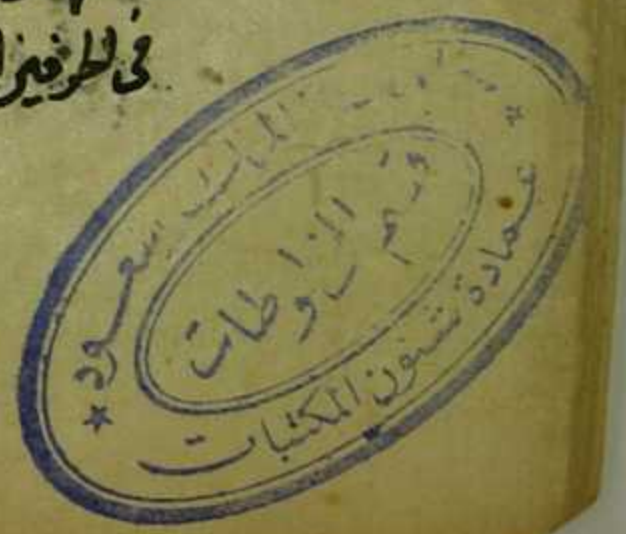 في الطرفين
جامعة الملك سعود
قسم المخطوطات
عمادة شئون المكتبات